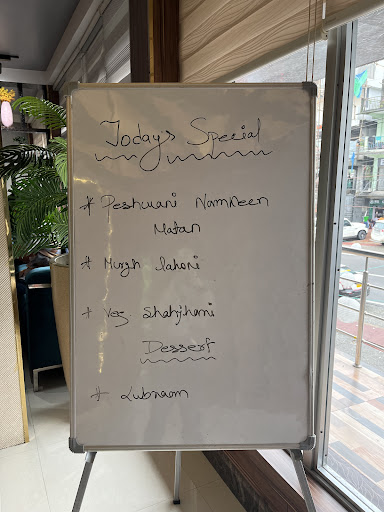 Today's Special
* Peshwari Namkeen
Matan
* Murgh lahori
+ Veg Shahjhani
Dessert
* Lubnaom